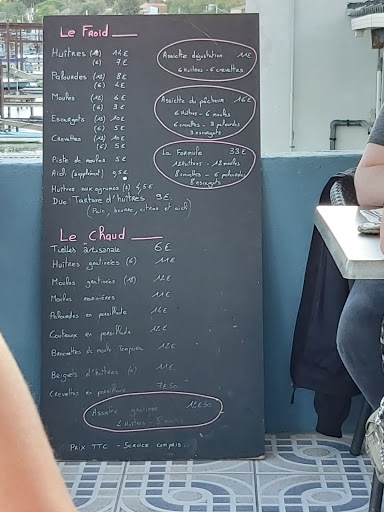 Le Froid
Huîtres (12) 14€
(6) 7€
Palourdes (12) 8€
(6) 4€
Moules (12) 6€
(6) 3€
Escargots (12) 10€
(6) 5€
Crevettes (12) 10€
(6) 5€
Piste de moules 5€
Aïoli (supplément)
Huîtres aux agrumes 4,5€
Duo Tartare d'huîtres 9€
(Pain, beurre, citron et aïoli)
Assiette dégustation 11€
6 Huîtres - 6 crevettes
Assiette du pêcheur 16€
6 Huîtres - 6 moules
6 crevettes - 3 palourdes
3 escargots
La Formule 33€
12 Huîtres - 12 moules
8 crevettes - 6 palourdes
8 escargots
Le Chaud
Tielles artisanale 6€
Huîtres gratinées (6) 11€
Moules gratinées (12) 12€
Moules marinières 11€
Palourdes en persillade 14€
Couteaux en persillade 12€
Brochettes de moule Tempura 12€
Beignets d'huîtres 11€
Crevettes en persillade 7€50
Assiette gratinée 12€50
Prix TTC - Service compris